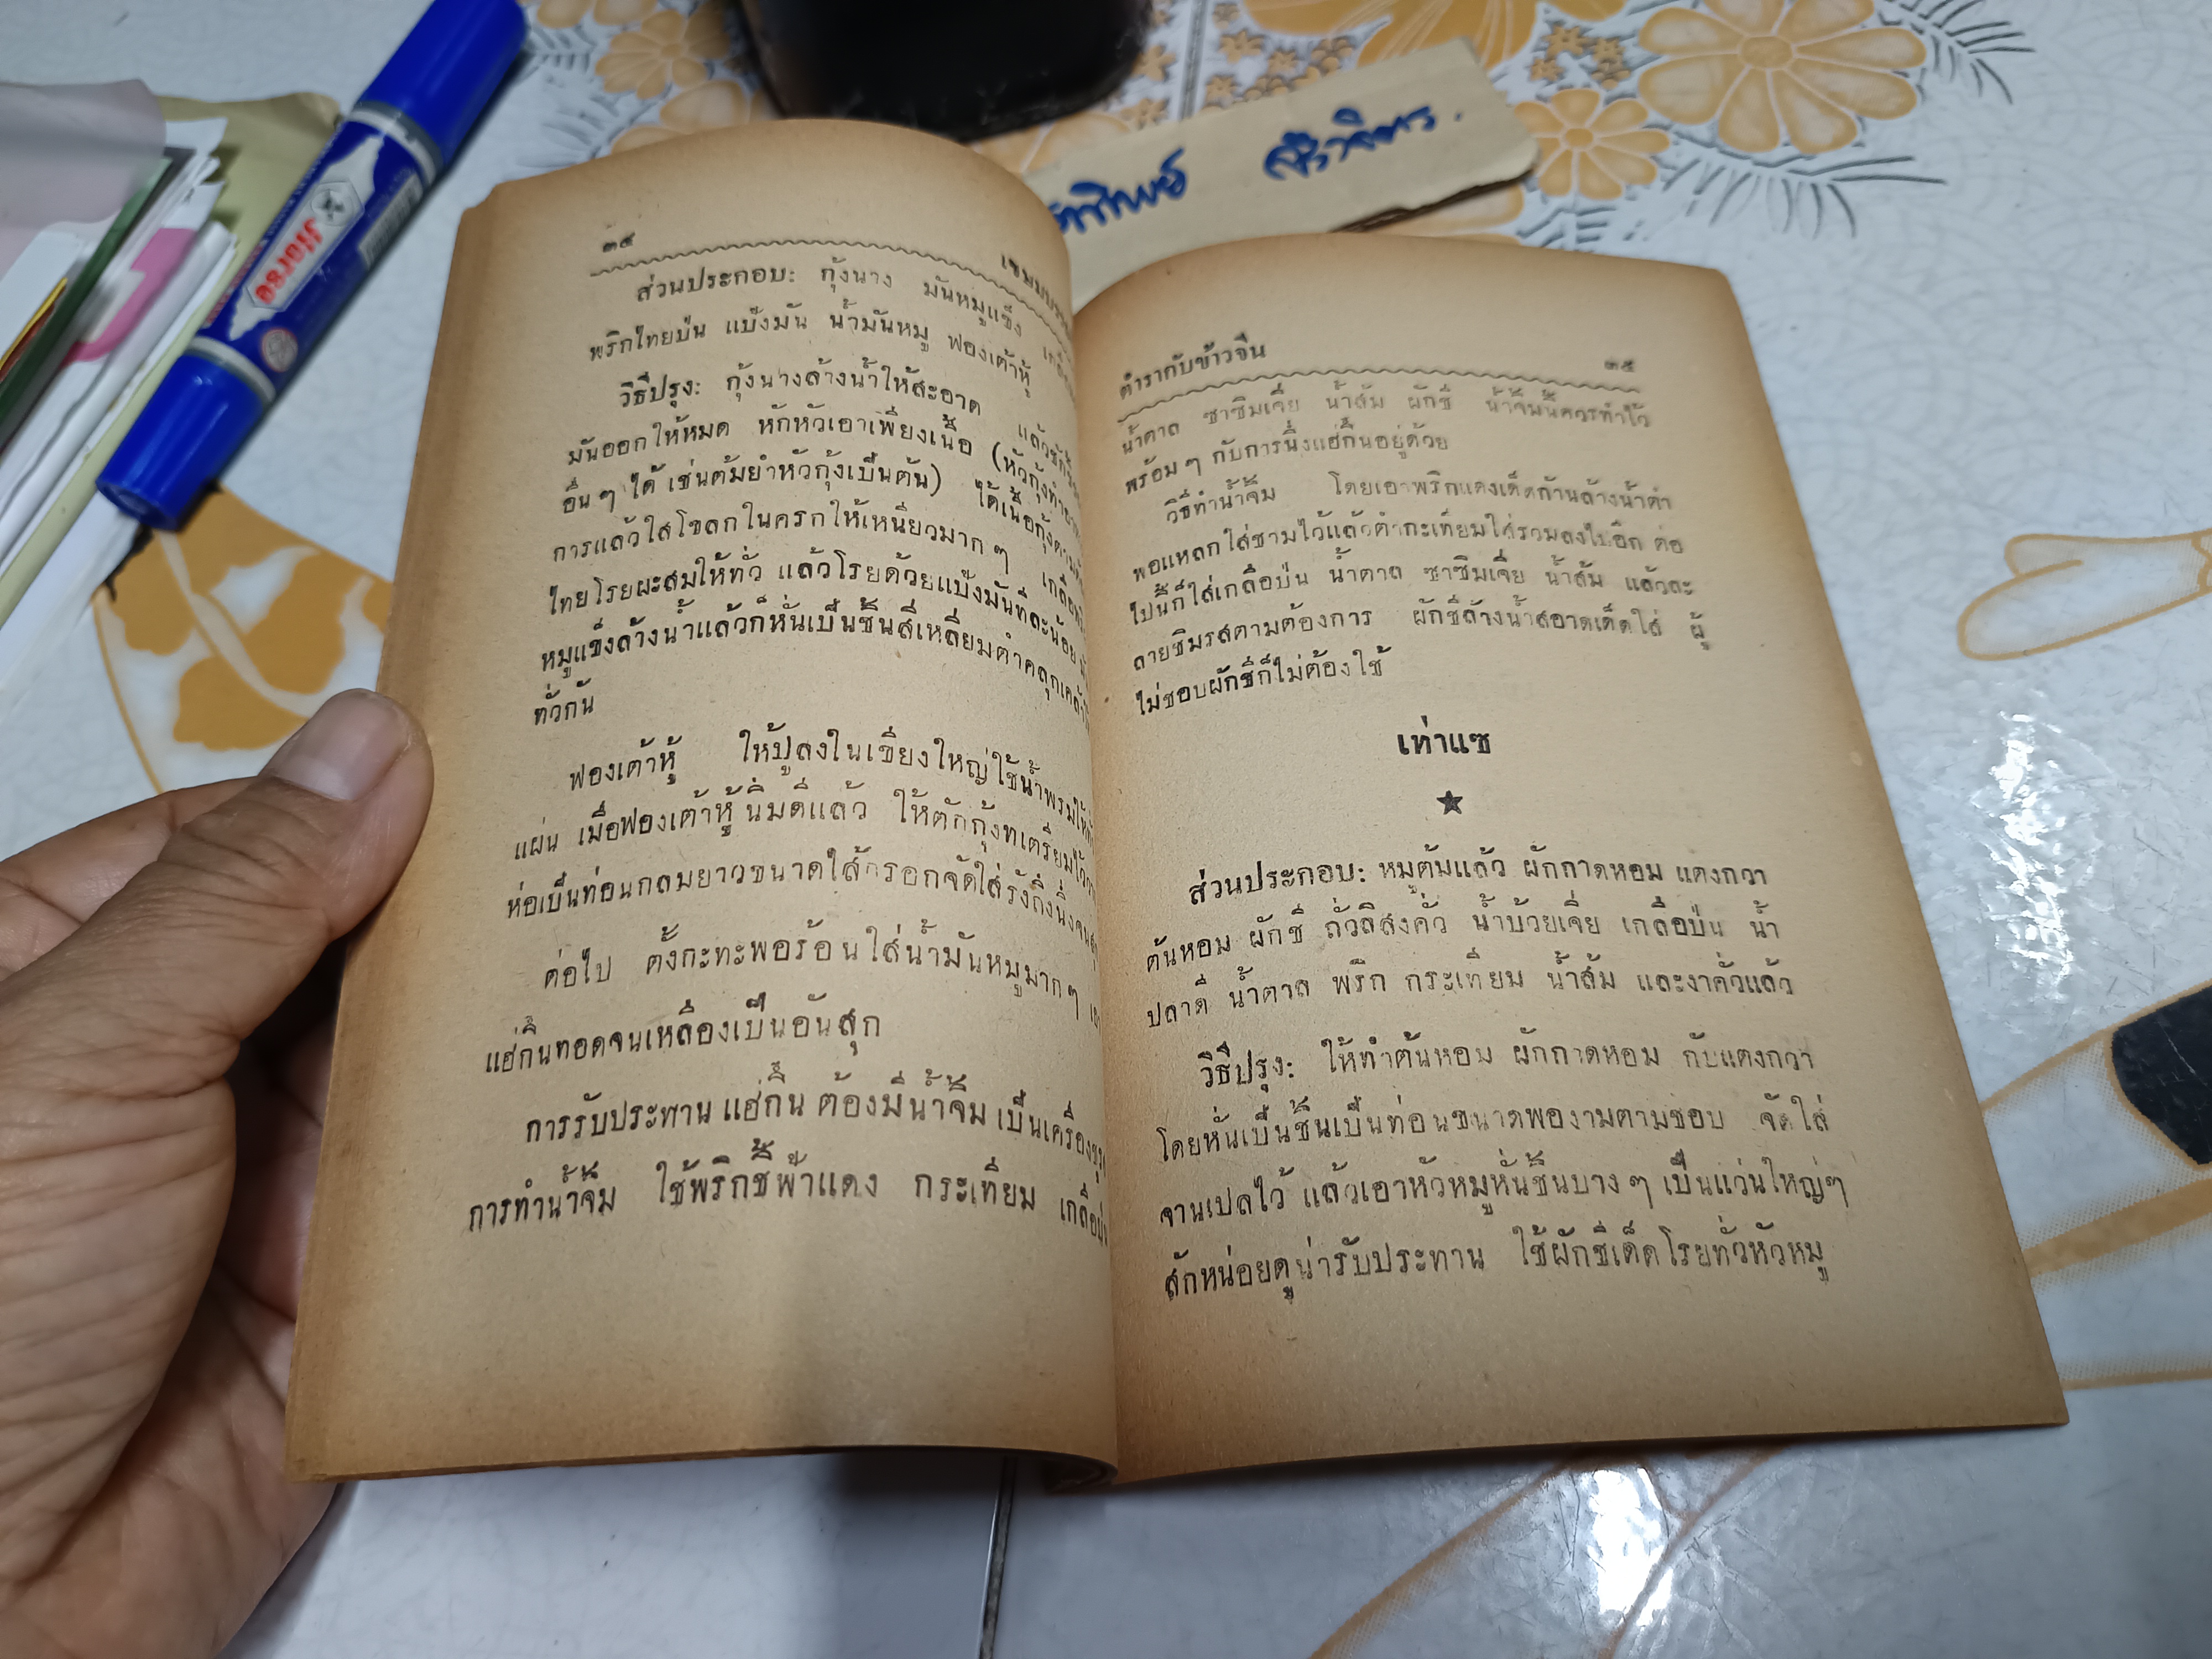 ๓๔
ส่วนประกอบ: กุ้งนาง มันหมูแข็ง
พริกไทยป่น แป้งมัน น้ำมันหมู ฟองเต้าหู้
วิธีปรุง: กุ้งนางล้างน้ำให้สะอาด แล้ว
มันออกให้หมด หักหัวเอาเพียงเนื้อ (หัวกุ้งทำ
อื่นๆ ได้ เช่นต้มยำหัวกุ้งเป็นต้น) ได้เนื้อกุ้ง
การแล้วใส่โขลกในครกให้เหนียวมากๆ เกลือ
ไทยโรยผะสมให้ทั่ว แล้วโรยด้วยแป้งมันทีละน้อย
หมูแข็งล้างน้ำแล้วก็หั่นเป็นชิ้นสี่เหลี่ยมตำคลุกเคล้า
ทั่วกัน
ฟองเต้าหู้ ให้ปูลงในเขียงใหญ่ใช้น้ำพรมให้
แผ่น เมื่อฟองเต้าหู้นิ่มดีแล้ว ให้ตักกุ้งที่เตรียมไว้
ห่อเป็นท่อนกลมยาวขนาดไส้กรอกจัดใส่รังถึงนึ่งจน
ต่อไป ตั้งกะทะพอร้อนใส่น้ำมันหมูมากๆ
แฮ่กึ้นทอดจนเหลืองเป็นอันสุก
การรับประทานแฮ่กึ้น ต้องมีน้ำจิ้ม เป็นเครื่อง
การทำน้ำจิ้ม ใช้พริกชี้ฟ้าแดง กระเทียม เกลือ
ตำรากับข้าวจีน ๓๕
น้ำตาล ซาซิมเจี่ย น้ำส้ม ผักชี น้ำจิ้มนี้ควรทำไว้
พร้อมๆ กับการนึ่งแฮ่กึ้นอยู่ด้วย
วิธีทำน้ำจิ้ม โดยเอาพริกแดงเด็ดก้านล้างน้ำตำ
พอแหลกใส่ชามไว้แล้วตำกะเทียมใส่รวมลงไปอีก ต่อ
ไปนี้ก็ใส่เกลือป่น น้ำตาล ซาซิมเจี่ย น้ำส้ม แล้วละ
ลายชิมรสตามต้องการ ผักชีล้างน้ำสอาดเด็ดใส่ ผู้
ไม่ชอบผักชีก็ไม่ต้องใช้
เท่าแซ
★
ส่วนประกอบ: หมูต้มแล้ว ผักกาดหอม แตงกวา
ต้นหอม ผักชี ถั่วลิสงคั่ว น้ำบ้วยเจี่ย เกลือป่น น้ำ
ปลาดี น้ำตาล พริก กระเทียม น้ำส้ม และงาคั่วแล้ว
วิธีปรุง: ให้ทำต้นหอม ผักกาดหอม กับแตงกวา
โดยหั่นเป็นชิ้นเป็นท่อนขนาดพองามตามชอบ จัดใส่
จานเปลไว้ แล้วเอาหัวหมูหั่นชิ้นบางๆ เป็นแว่นใหญ่ๆ
สักหน่อยดูน่ารับประทาน ใช้ผักชีเด็ดโรยทั่วหัวหมู
Horse